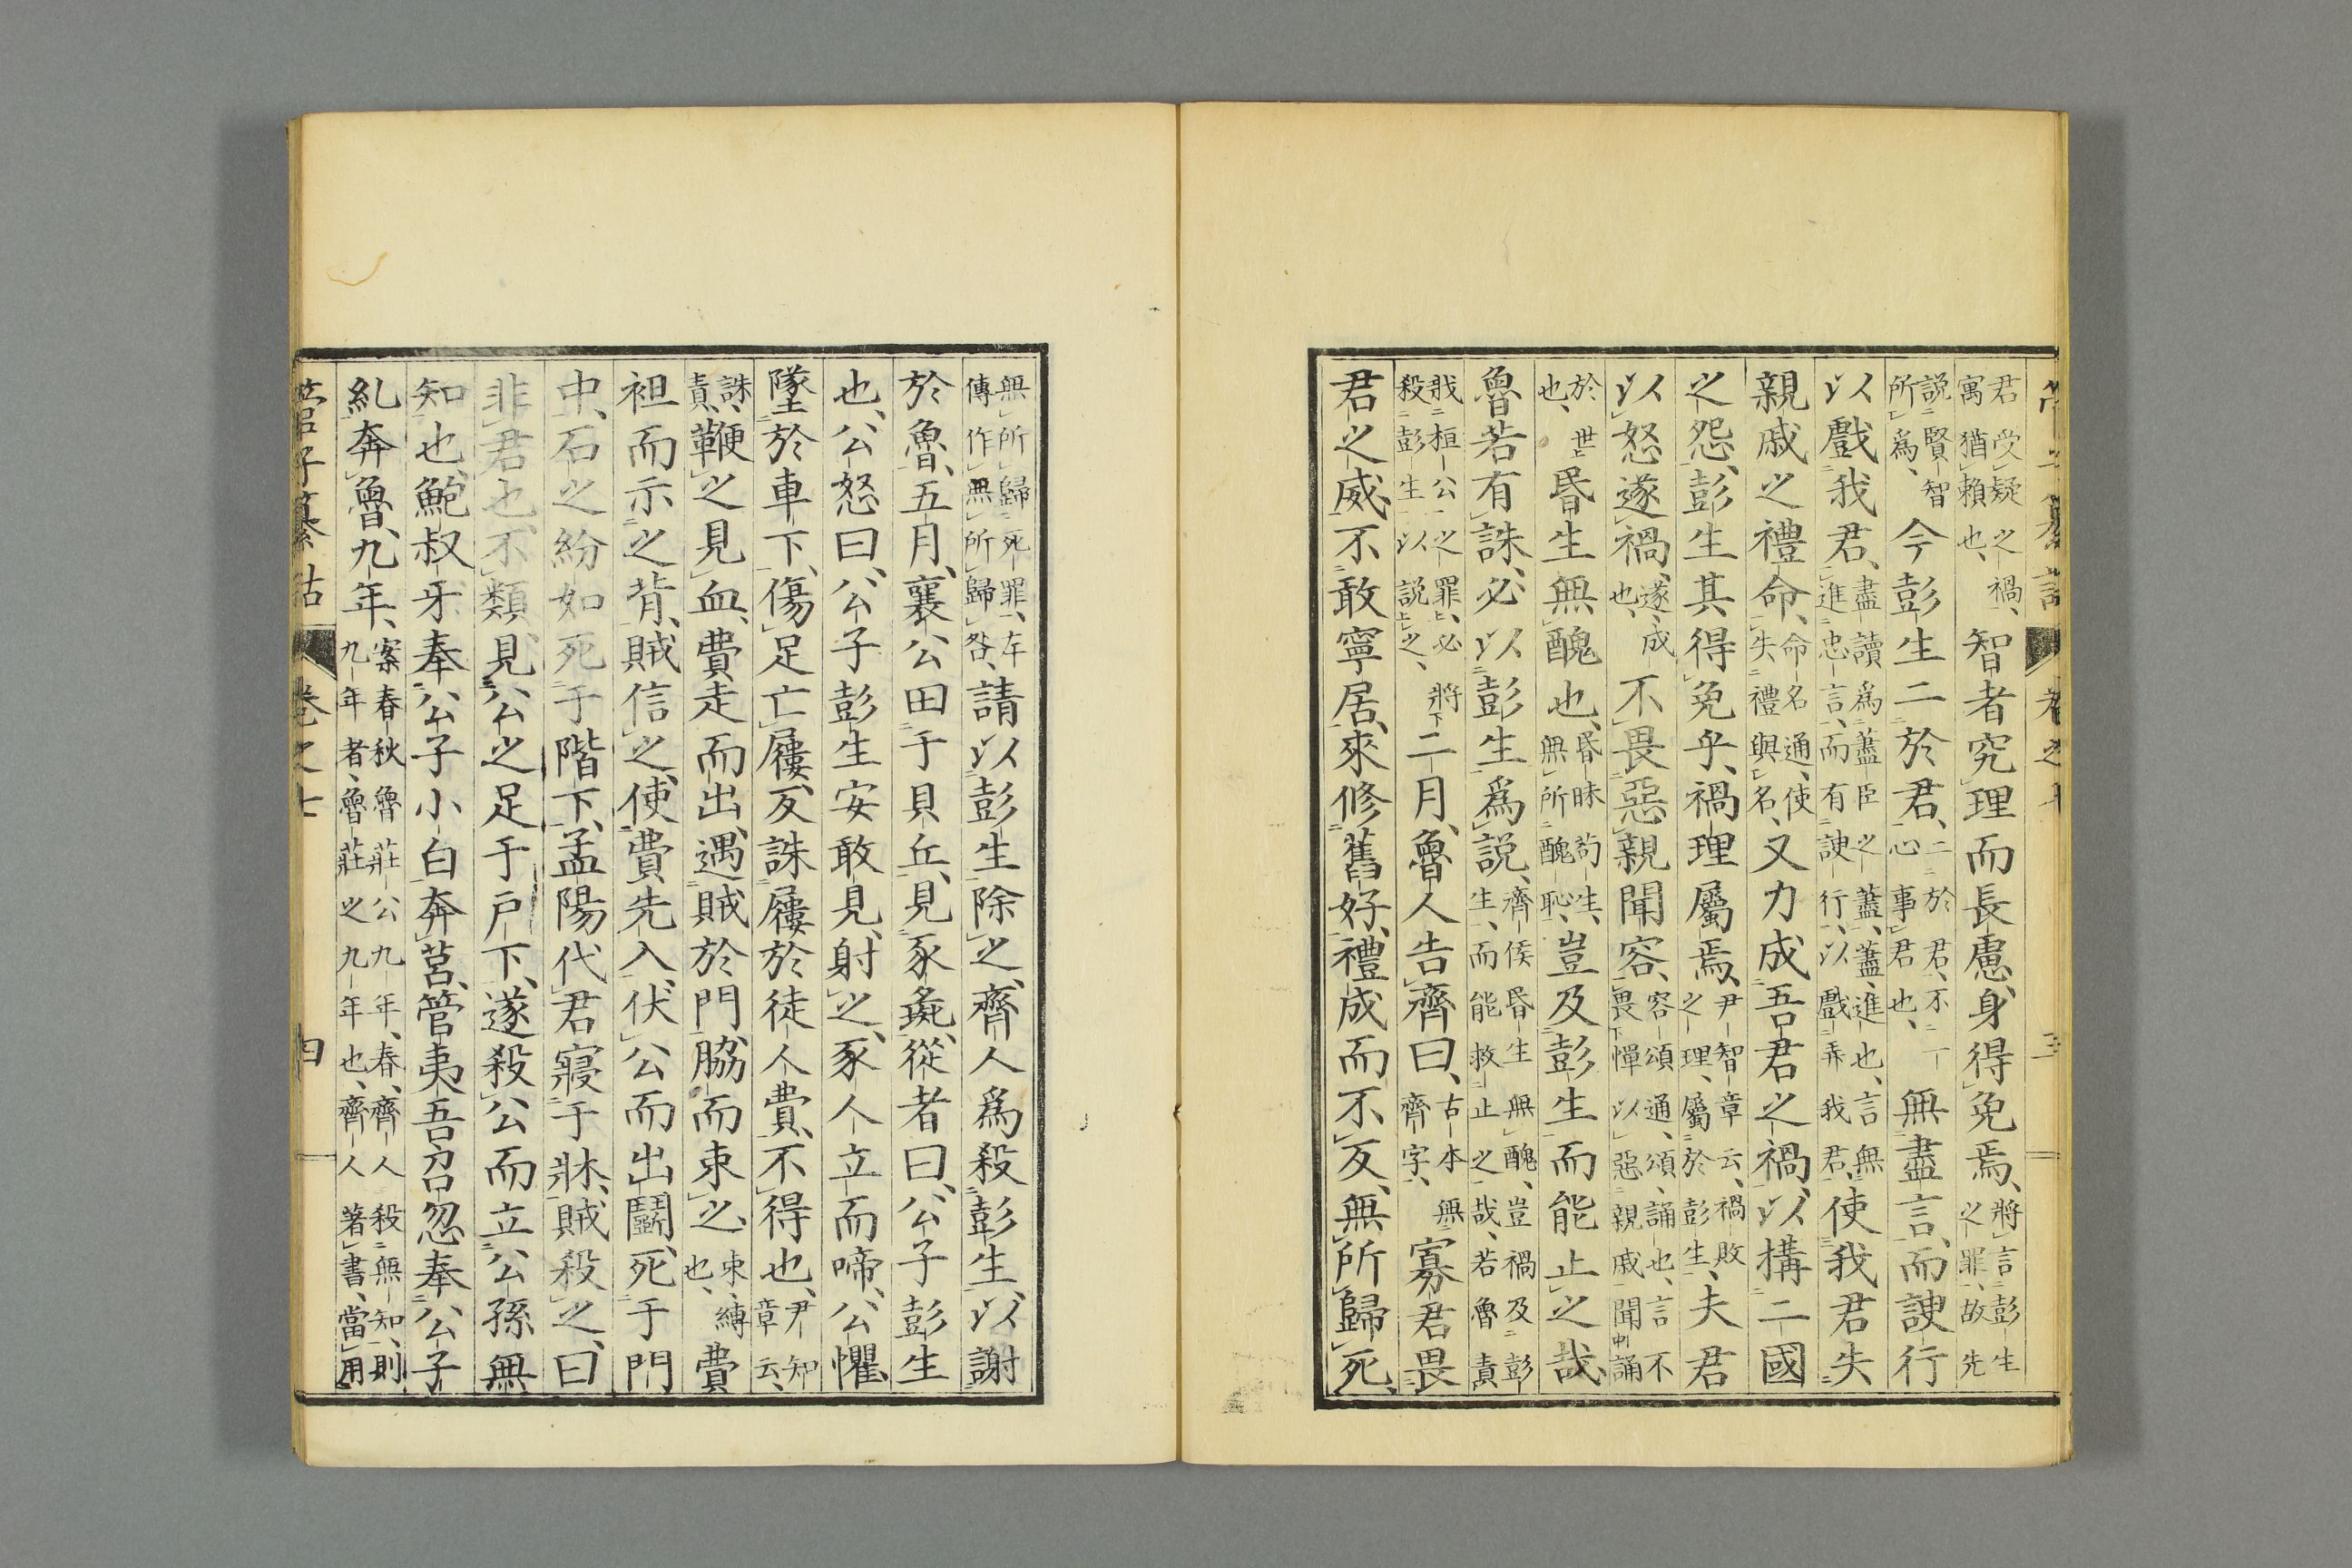 管子纂詁 卷之七 三
君受疑之禍、寓猶賴也、智者究理而長慮、身得免焉、將言彭生之罪、故先
説賢智所爲、今彭生二於君、二於君、不一心事君也、無盡言、而諛行
以戲我君、盡讀爲藎臣之藎、藎、進也、言無進忠言、而有諛行、以戲弄我君、使我君失
親戚之禮命、命名通、使失禮與名、又力成吾君之禍、以構二國
之怨、彭生其得免乎、禍理屬焉、尹智章云、禍敗之理、屬於彭生、夫君
以怒遂禍、遂、成也、不畏惡親聞容、容頌通、頌、誦也、言不畏憚以惡親戚聞誦
於世也、昬生無醜也、昬昧苟生、無所醜恥、豈及彭生而能止之哉、
魯若有誅、必以彭生爲説、齊侯昬生無醜、豈禍及彭生、而能救止之哉、若魯責
我桓公之罪、必將殺彭生以説之、二月、魯人告齊曰、古本無齊字、寡君畏
君之威、不敢寧居、來修舊好、禮成而不反、無所歸死、
無所歸死罪、左傳作無所歸咎、請以彭生除之、齊人爲殺彭生、以謝
於魯、五月、襄公田于貝丘、見豕彘、從者曰、公子彭生
也、公怒曰、公子彭生安敢見、射之、豕人立而啼、公懼、
墜於車下、傷足亡屨、反誅屨於徒人費、不得也、尹知章云、
誅、責、鞭之見血、費走而出、遇賊於門、脇而束之、束、縛也、費
袒而示之背、賊信之、使費先入、伏公而出鬭、死于門
中、石之紛如死于階下、孟陽代君寢于牀、賊殺之、曰
非君也、不類、見公之足于戸下、遂殺公而立公孫無
知也、鮑叔牙奉公子小白奔莒、管夷吾召忽奉公子
糺奔魯、九年、案春秋魯莊公九年、春、齊人殺無知、則九年者、魯莊之九年也、齊人著書、當用
管子纂詁 卷之七 四